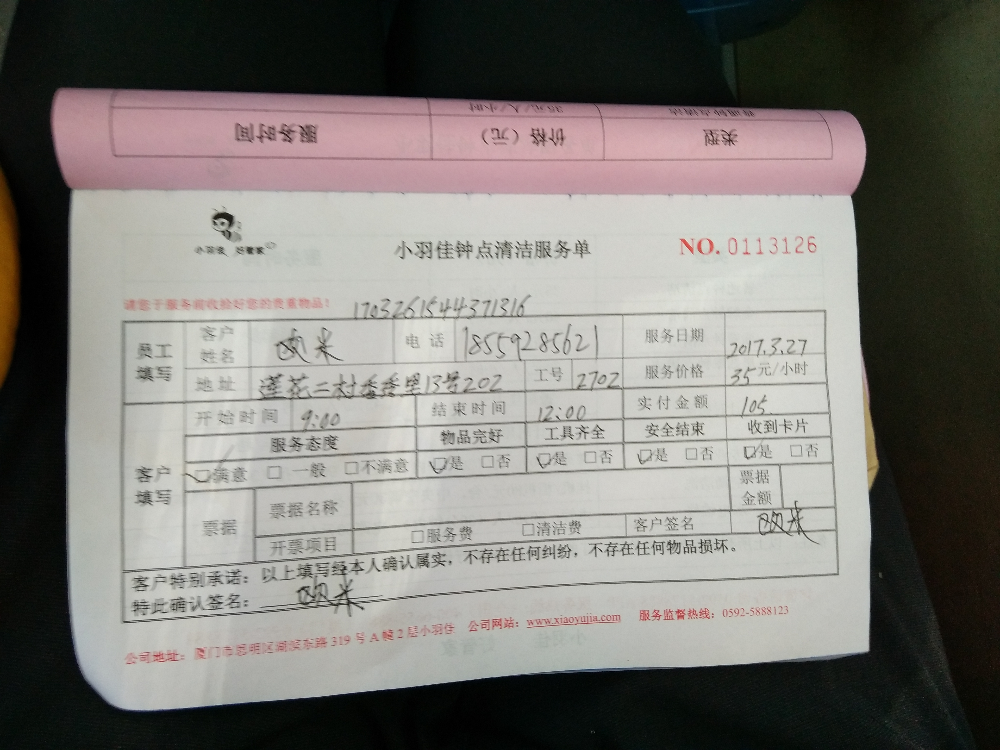 服务时间 价格（元） 类型
35元/人/小时
小羽佳 好管家
小羽佳钟点清洁服务单 NO. 0113126
请您于服务前收捡好您的贵重物品！ 1703261544371316
员工填写 客户姓名 欧米 电话 18559285621 服务日期 2017.3.27
地址 莲花二村香秀里13号202 工号 2702 服务价格 35元/小时
客户填写 开始时间 9:00 结束时间 12:00 实付金额 105
服务态度 物品完好 工具齐全 安全结束 收到卡片
☑满意 □一般 □不满意 ☑是 □否 ☑是 □否 ☑是 □否 ☑是 □否
票据 票据名称 票据金额
开票项目 □服务费 □清洁费 客户签名 欧米
客户特别承诺：以上填写经本人确认属实，不存在任何纠纷，不存在任何物品损坏。
特此确认签名： 欧米
公司地址：厦门市思明区湖滨东路319号A幢2层小羽佳 公司网站：www.xiaoyujia.com 服务监督热线：0592-5888123